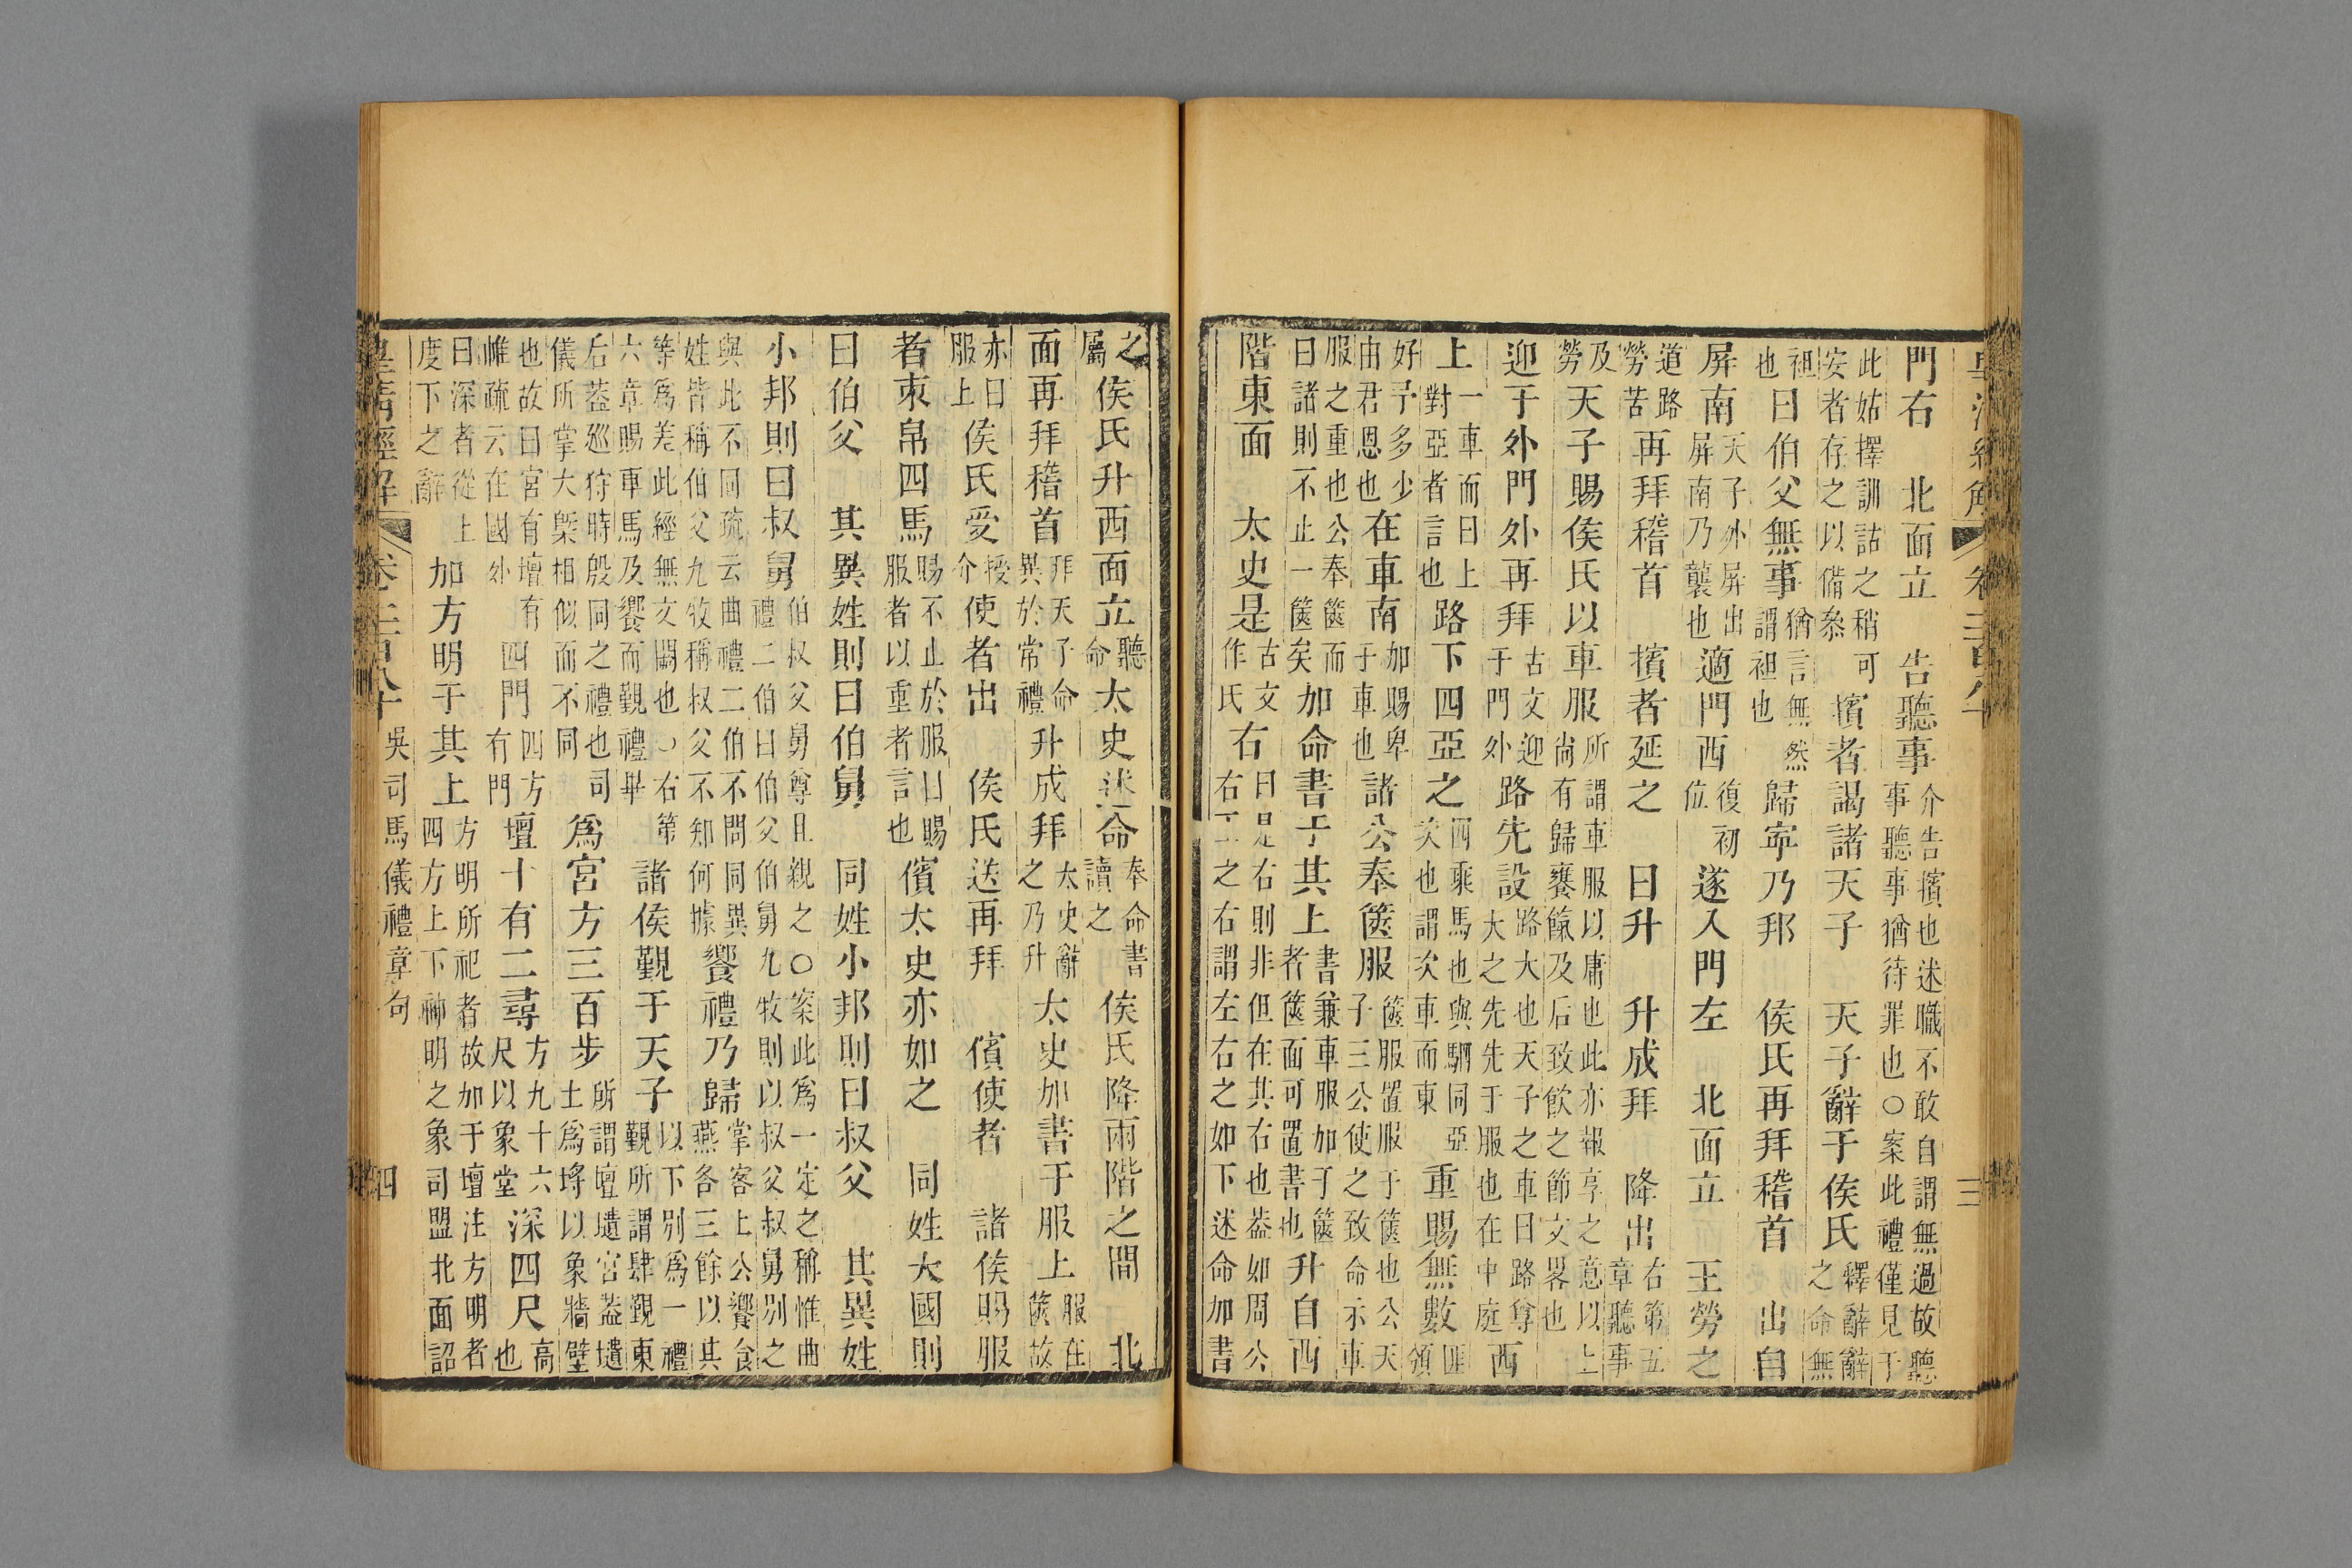 皇清經解 卷二百八十 三
門右 北面立 告聽事介告擯也述職不敢自謂無過故聽事聽事猶待罪也○案此禮僅見于
此姑擇訓詁之稍可安者存之以備叅擯者謁諸天子 天子辭于侯氏釋辭辭之命無
袒也曰伯父無事猶言無然謂袒也歸寧乃邦 侯氏再拜稽首 出自
屏南天子外屏出屏南乃襲也適門西復初位遂入門左 北面立 王勞之
道路勞苦再拜稽首 擯者延之 曰升 升成拜 降出右第五章聽事
及勞天子賜侯氏以車服所謂車服以庸也此亦報享之意以上尚有歸饔餼及后致飲之節文畧也
迎于外門外再拜古文迎于門外路先設路大也天子之車曰路尊大之先先于服也在中庭西
上一車而曰上對亞者言也路下四亞之四乘馬也與駟同亞次也謂次車而東重賜無數匪頒
好予多少由君恩也在車南加賜卑于車也諸公奉篋服篋服置服于篋也公天子三公使之致命示車
服之重也公奉篋而曰諸則不止一篋矣加命書于其上書兼車服加于篋者篋面可置書也升自西
階東面 太史是古文作氏右曰是右則非但在其右也葢如周公右王之右謂左右之如下述命加書
之屬侯氏升西面立聽命太史述命奉命書讀之侯氏降兩階之間 北
面再拜稽首拜天子命異於常禮升成拜太史辭之乃升太史加書于服上服在篋故
亦曰服上侯氏受授介使者出 侯氏送再拜 儐使者 諸侯賜服
者束帛四馬賜不止於服曰賜服者以重者言也儐太史亦如之 同姓大國則
曰伯父 其異姓則曰伯舅 同姓小邦則曰叔父 其異姓
小邦則曰叔舅伯叔父舅尊且親之○案此爲一定之稱惟曲禮二伯曰伯父伯舅九牧則以叔父叔舅別之
與此不同疏云曲禮二伯不問同異姓皆稱伯父九牧稱叔父不知何據饗禮乃歸掌客上公饗食燕各三餘以其
等爲差此經無文闕也○右第六章賜車馬及饗而覲禮畢諸侯覲于天子以下別爲一禮覲所謂肆覲東
后葢廵狩時殷同之禮也司儀所掌大槩相似而不同爲宮方三百步所謂壇壝宮葢壝土爲埓以象牆壁
也故曰宮有壇有惟疏云在國外四門四方有門壇十有二尋方九十六尺以象堂深四尺高也
曰深者從上度下之辭加方明于其上方明所祀者故加于壇注方明者四方上下神明之象司盟北面詔
皇清經解 卷二百八十 吳司馬儀禮章句 四